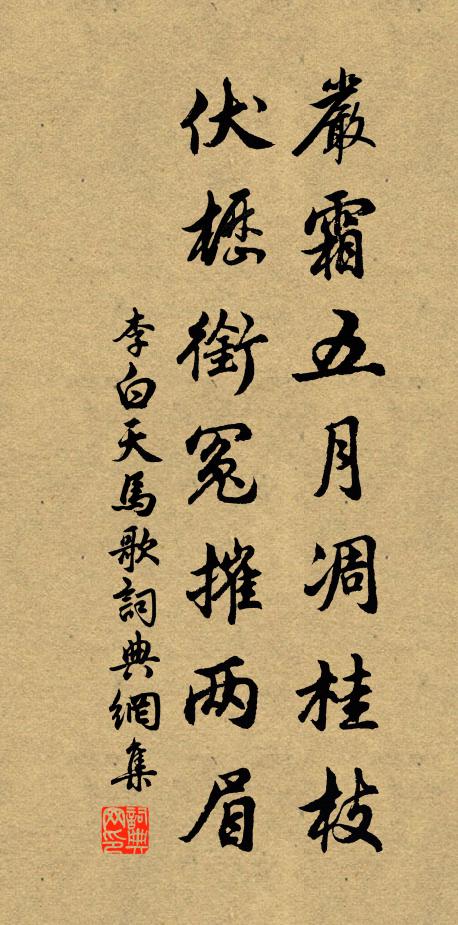 嚴霜五月凋桂枝
伏櫪銜冤摧兩眉
李白天馬歌詞典網集
詞典網印